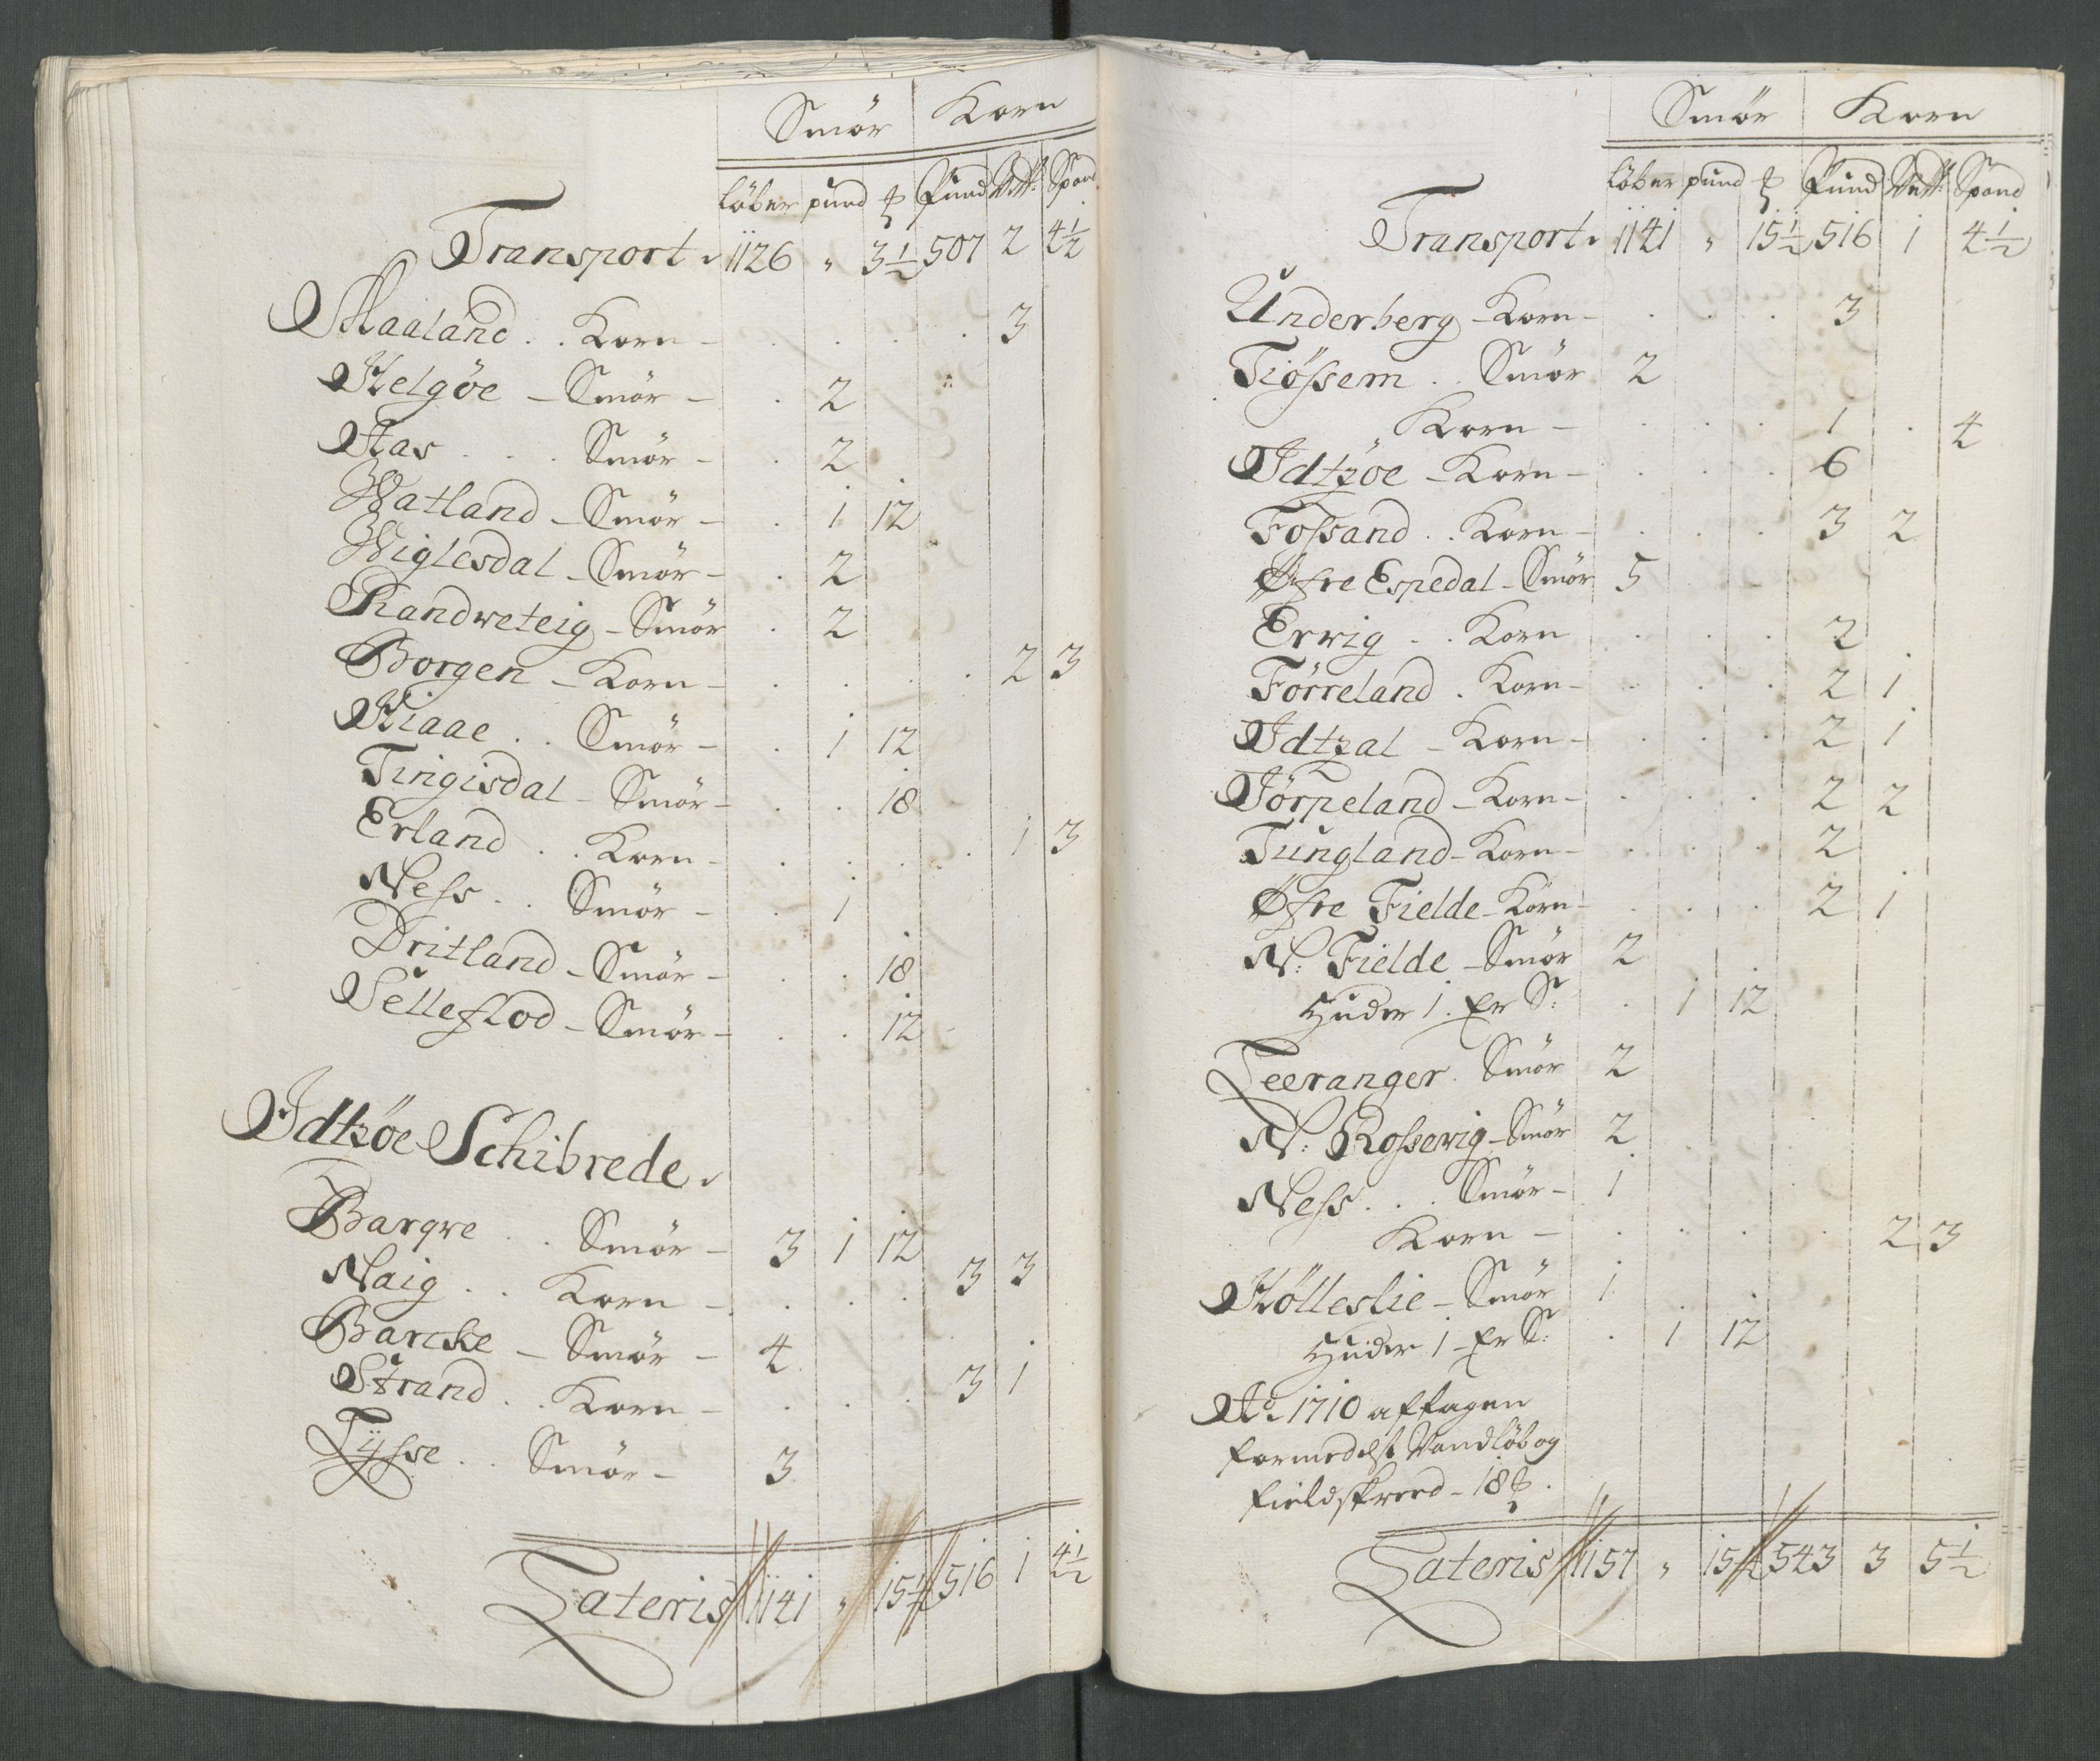 Smör Korn
löber pund ℔ Pund Vett: Spand
Transport. 1126 " 3½ 507 2 4½
Maaland . . Korn - 3
Helgöe - Smör - 2
Aas . . . Smör - 2
Watland - Smör - 1 12
Wiglesdal - Smör - 2
Randweteig - Smör 2
Borgen - Korn - 2 3
Kiaae . . Smör - 1 12
Tingisdal - Smör - 18
Erland . . Korn - 1 3
Ness . . Smör - 1
Dritland - Smör - 18
Selleflod - Smör - 12
Idtzöe Schibrede.
Bargve . . Smör - 3 1 12
Naig . . Korn - 3 3
Barcke - Smör - 4
Strand . . Korn - 3 1
Tÿsse . . Smör - 3
Lateris 1141 " 15½ 516 1 4½
Smör Korn
löber pund ℔ Pund Vett: Spand
Transport. 1141 " 15½ 516 1 4½
Underberg - Korn - 3
Tiössem . . Smör 2
Korn - 1 . 4
Idtzöe - Korn - 6
Fossand . . Korn - 3 2
Øfre Espedal - Smör 5
Erwig . . Korn 2
Förreland . Korn - 2 1
Idtzal - Korn - 2 1
Jörpeland - Korn - 2 2
Tungland - Korn - 2
Øfre Fielde - Korn - 2 1
N: Fielde - Smör 2
Huder 1. Er S: 1 12
Leeranger . Smör 2
N: Rosserig - Smör 2
Ness . . . Smör - 1
Korn - 2 3
Kölleslie - Smör 1
Huder 1 - Er S: 1 12
Ao. 1710 aftagen
formedelst Vandlöb og
fieldskreed - 18 ℔.
Lateris 1157 " 15½ 543 3 5½